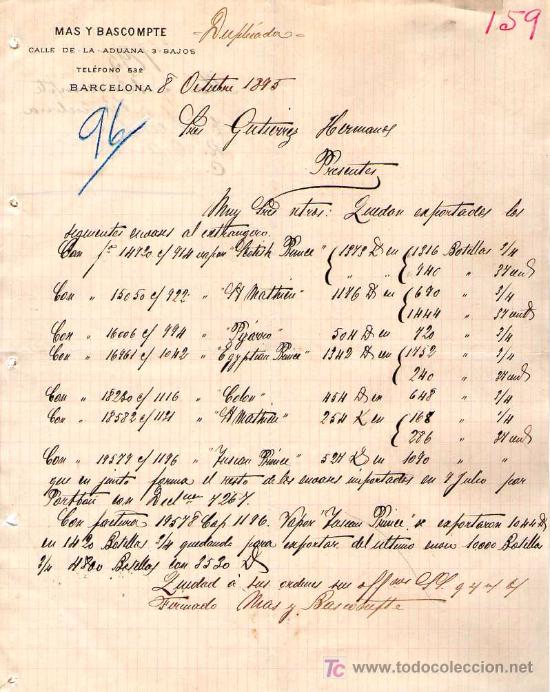 159
MAS Y BASCOMPTE
Duplicada
CALLE DE LA ADUANA 3 BAJOS
TELÉFONO 532
BARCELONA 8 Octubre 1895
96
Sres Gutierrez Hermanos
Presentes
Muy Sres ntros: Quedan exportados los
siguientes envases al extrangero.
Con 14720 c/ 914 vapor "Scotish Prince" 1373 D en 1316 Botellas 3/4
" " 940 "
Con " 15050 c/ 922 " " Mathieu" 1176 D en 690 " 3/4
1444 "
Con " 16006 c/ 994 " "Pizarro" 504 D en 720 " 3/4
Con " 16961 c/ 1042 " "Egyptian Prince" 1342 D en 1752 " 3/4
240 "
Con " 18230 c/ 1116 " "Colon" 454 D en 648 " 3/4
Con " 18582 c/ 1121 " " Mathieu" 254 K en 168 " 3/4
286 "
Con " 19579 c/ 1196 " "Tuscan Prince" 527 K en 1090 " "
que en junto forma el resto de los envases importados en 9 Julio por
Portbou con 7267.
Con factura 19578 Cap 1196. Vapor "Tuscan Prince" se exportaron 1044 D
en 1420 Botellas 3/4 quedando para exportar del ultimo envio 10000 Botellas
3/4 4820 Botellas con 3330 D
Quedad á sus ordenes sus
Firmado Mas y Bascompte
TC www.todocoleccion.net